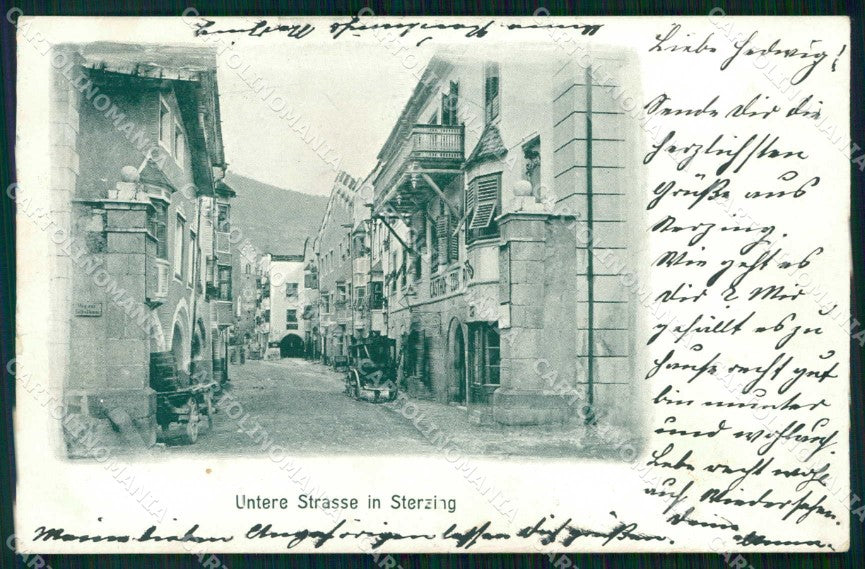 Liebe Hedwig!
Sende Dir die
herzlichsten
Grüße aus
Sterzing.
Wie geht es
Dir? Mir
gefällt es zu
Hause recht gut
bin munter
und wohlauf.
Lebe recht wohl
auf Wiedersehen.
Deine
Anna.
Untere Strasse in Sterzing
Meine lieben Angehörigen lassen dich grüßen.
CARTOLINOMANIA